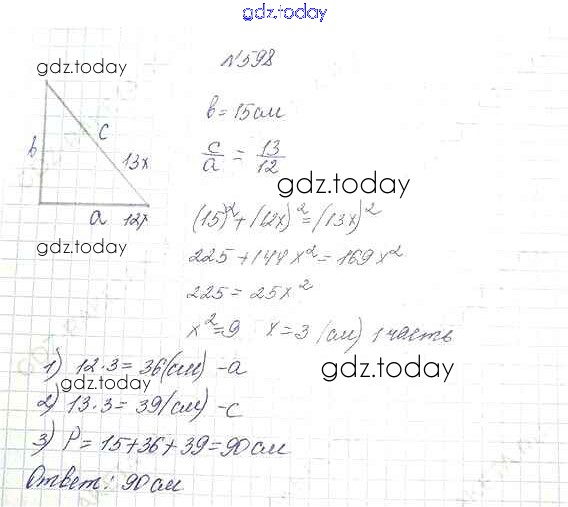 gdz.today
№598
gdz.today
b = 15 см
b
c
13x
c/a = 13/12
gdz.today
a
12x
(15)² + (12x)² = (13x)²
gdz.today
225 + 144x² = 169x²
225 = 25x²
x² = 9 x = 3 (см) 1 часть
1) 12·3 = 36(см) - a
gdz.today
gdz.today
2) 13·3 = 39(см) - c
3) P = 15 + 36 + 39 = 90 см
Ответ: 90 см